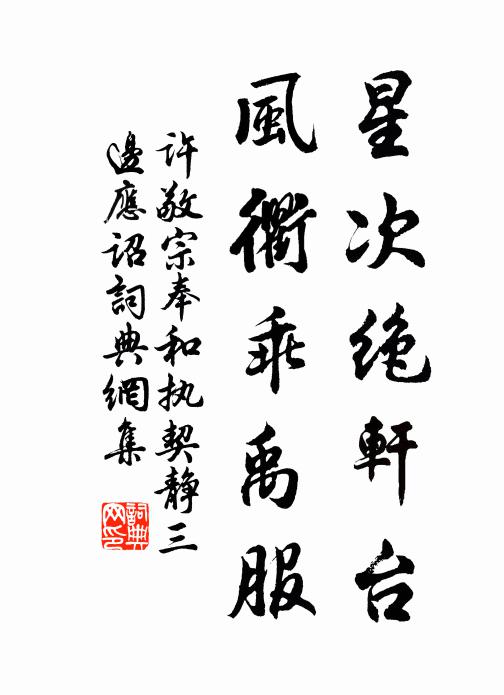 星次绝軒台
風衢乖禹服
许敬宗奉和执契静三
邊應詔詞典網集
詞典
网印